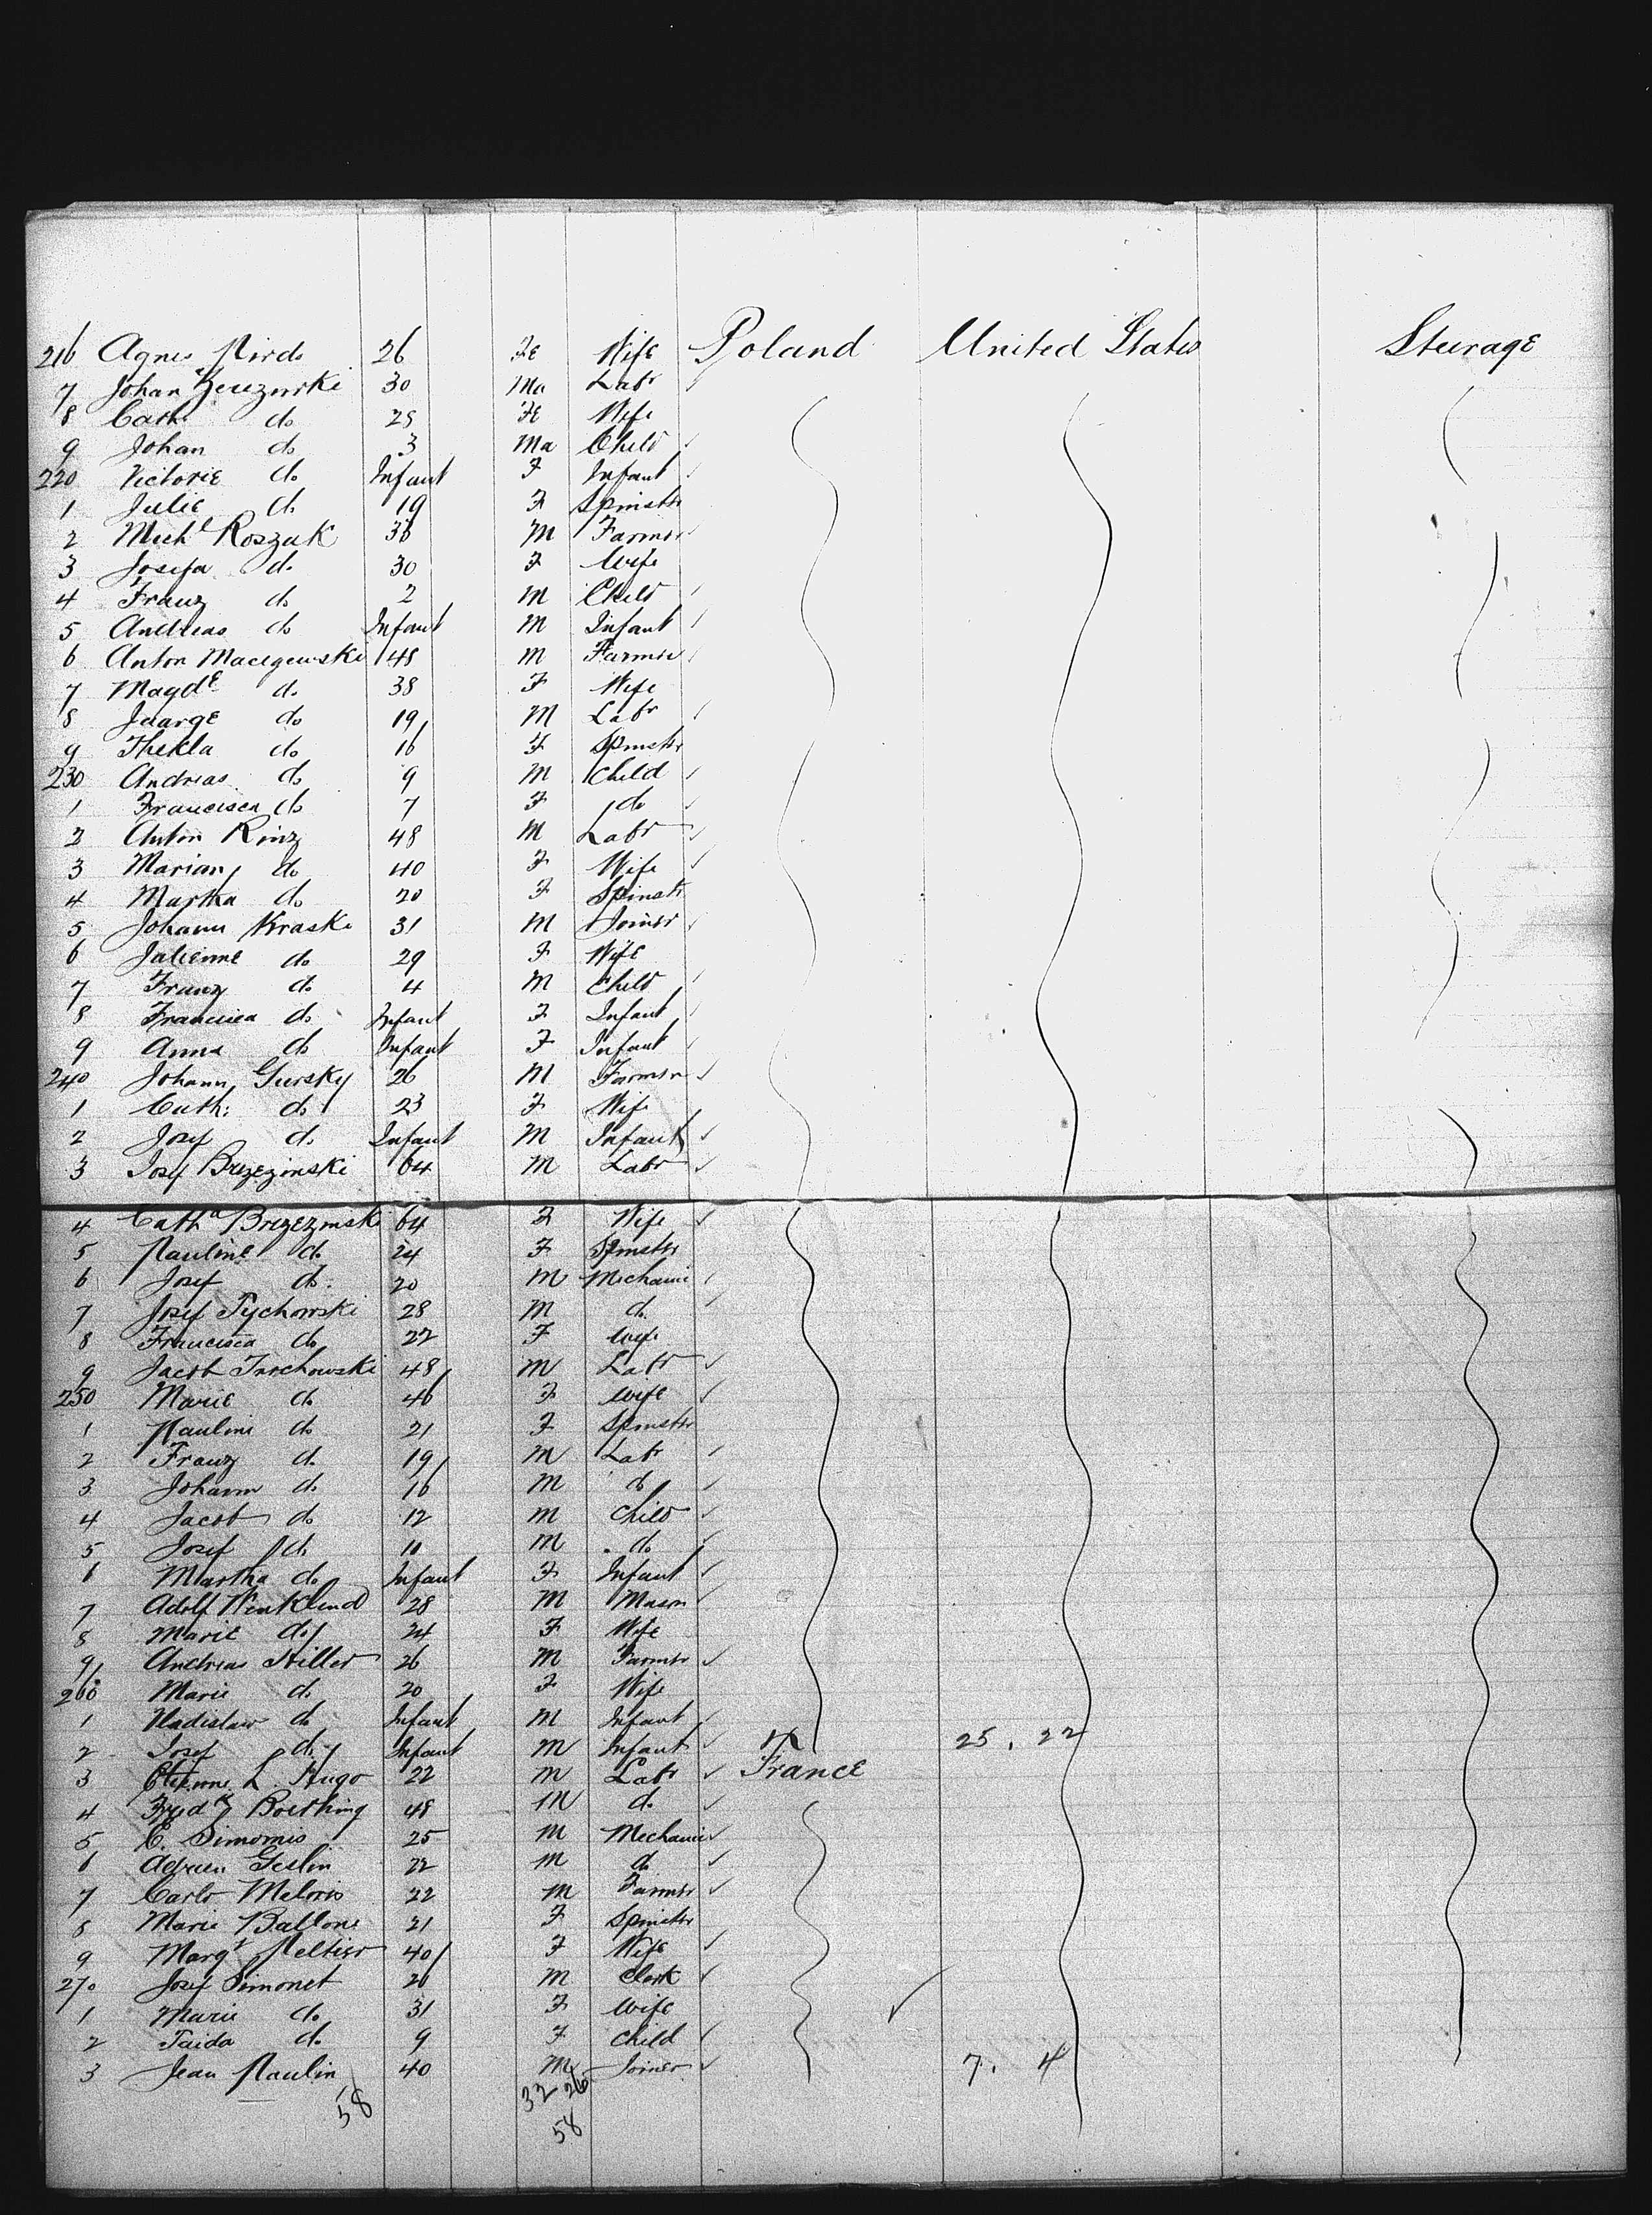 216 Agnes Pirds 26 Fe Wife Poland United States Steerage
7 Johan 30 Ma Labr
8 Cath. do 28 Fe Wife
9 Johan do 3 Ma Child
220 Victorie do Infant F Infant
1 Julie do 19 F Spinstr
2 Mich.l Roszak 38 M Farmer
3 Josefa do 30 F Wife
4 Franz do 2 M Child
5 Andreas do Infant M Infant
6 Anton Macigewski 48 M Farmer
7 Magd.e do 38 F Wife
8 Jaarge do 19 M Labr
9 Thekla do 16 F Spinstr
230 Andreas do 9 M Child
1 Francisca do 7 F do
2 Anton Rinz 48 M Labr
3 Marian do 40 F Wife
4 Martha do 20 F Spinstr
5 Johann Kraske 31 M Joiner
6 Julienne do 29 F Wife
7 Franz do 4 M Child
8 Francisca do Infant F Infant
9 Anna do Infant F Infant
240 Johann Gursky 26 M Farmer
1 Cath: do 23 F Wife
2 Josef do Infant M Infant
3 Josef Brzezinski 64 M Labr
4 Cath.a Brzezinski 64 F Wife
5 Pauline do 24 F Spinstr
6 Josef do. 20 M Mechanic
7 Josef Tychowski 28 M do
8 Francisca do 22 F Wife
9 Jacob Tarchowski 48 M Labr
250 Marie do 46 F Wife
1 Pauline do 21 F Spinstr
2 Franz do 19 M Labr
3 Johann do 16 M do
4 Jacob do 12 M Child
5 Josef do 10 M do
6 Martha do Infant F Infant
7 Adolf 28 M Mason
8 Marie do 24 F Wife
9 Andreas Hiller 26 M Farmer
260 Marie do 20 F Wife
1 Vladislaw do Infant M Infant
2 Josef do Infant M Infant 25. 22
3 Etienne L. Hugo 22 M Labr France
4 Fredk Boerthing 48 M do
5 C. Simomis 25 M Mechanic
6 Adrien Geslin 22 M do
7 Carlo Meloris 22 M Farmer
8 Marie Ballone 21 F Spinstr
9 Margt Peltier 40 F Wife
270 Josef Simonet 26 M Clerk
1 Marie do 31 F Wife
2 Taida do 9 F Child
3 Jean Paulin 40 M Joiner 7. 4
58 32 26
58